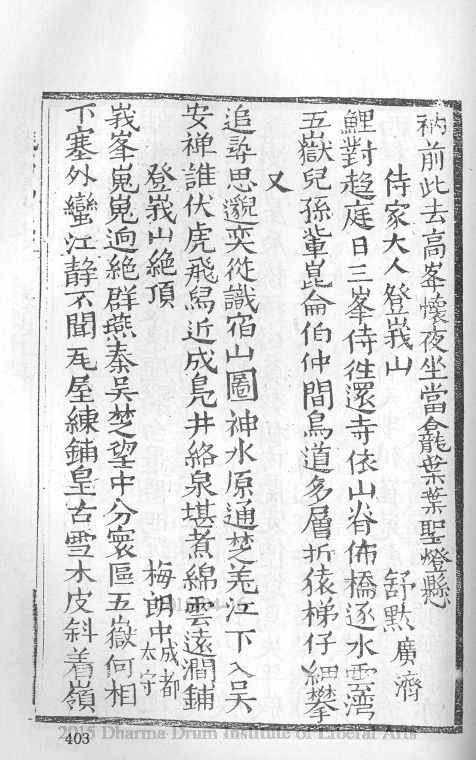 衲前此去高峯懷夜坐當龕葉葉聖燈懸
侍家大人登峩山 舒㸃廣濟
鯉對趨庭日三峯侍徃還寺依山脊佈橋逐水雲灣
五嶽兒孫軰崑侖伯仲間鳥道多層折猿梯仔細攀
又
追尋思邈奕從識宿山圖神水原通楚羌江下入吳
安禅誰伏虎飛舄近成鳬井絡泉堪煮綿雲遠澗鋪
登峩山絶頂 梅朗中成都太守
峩峯嵬嵬逈絶群燕秦吳楚望中分寰區五嶽何相
下塞外蠻江静不聞瓦屋練鋪皇古雪木皮斜着嶺
403
2015 Dharma Drum Institute of Liberal Arts